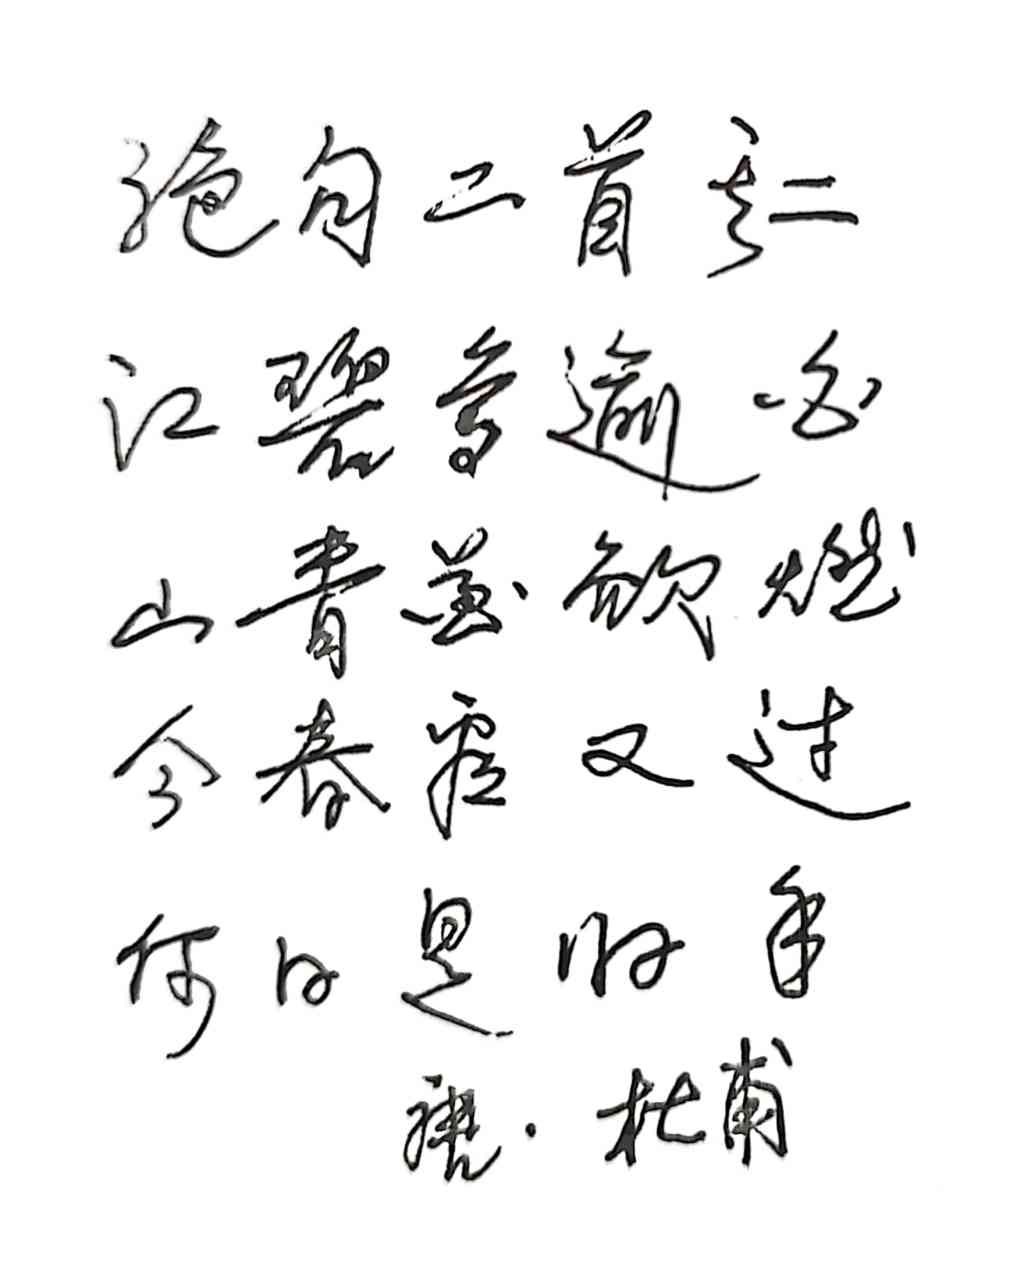 绝句二首其二
江碧鸟逾白
山青花欲燃
今春看又过
何日是归年
唐·杜甫